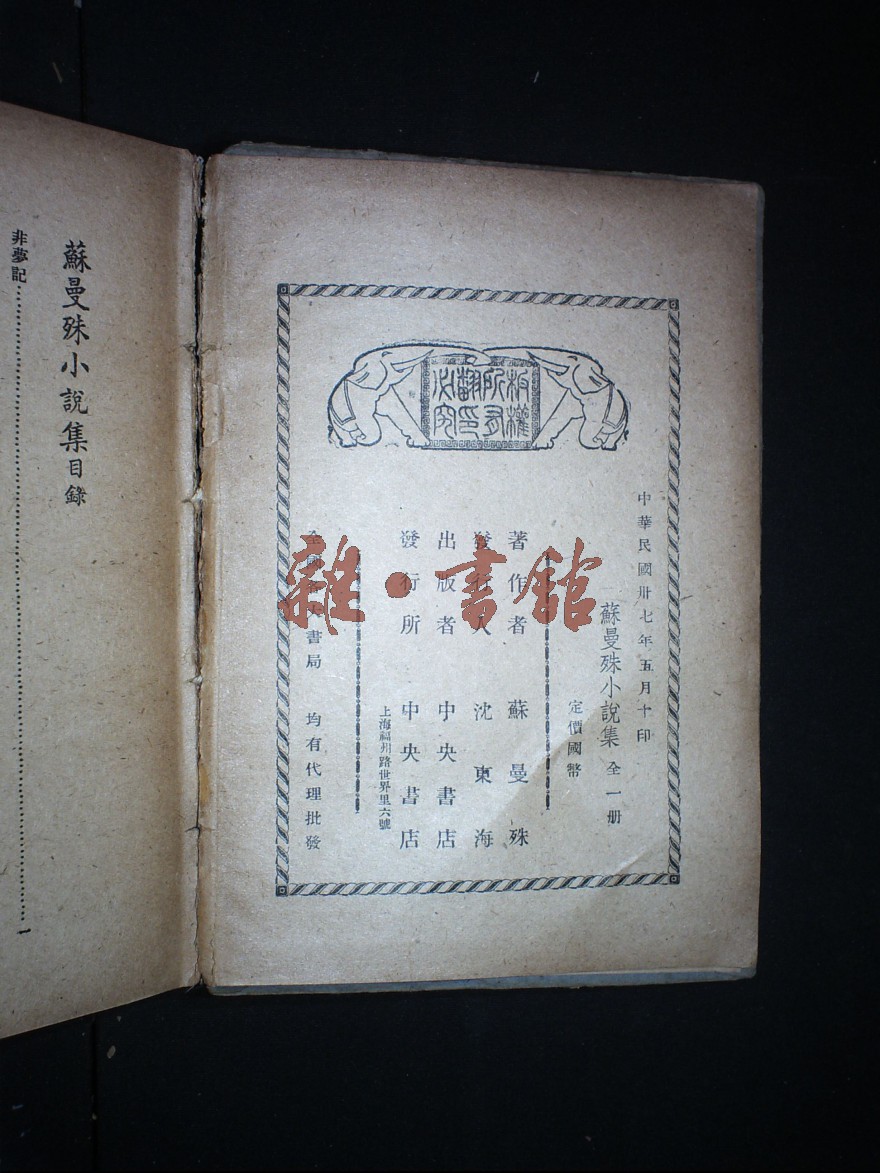 中華民國卅七年五月十印
蘇曼殊小說集 全一册
定價國幣
著作者 蘇曼殊
發行人 沈東海
出版者 中央書店
發行所 中央書店
上海福州路世界里六號
全國各大書局 均有代理批發
板權所有翻印必究
雜·書館
蘇曼殊小說集目錄
非夢記……………………一